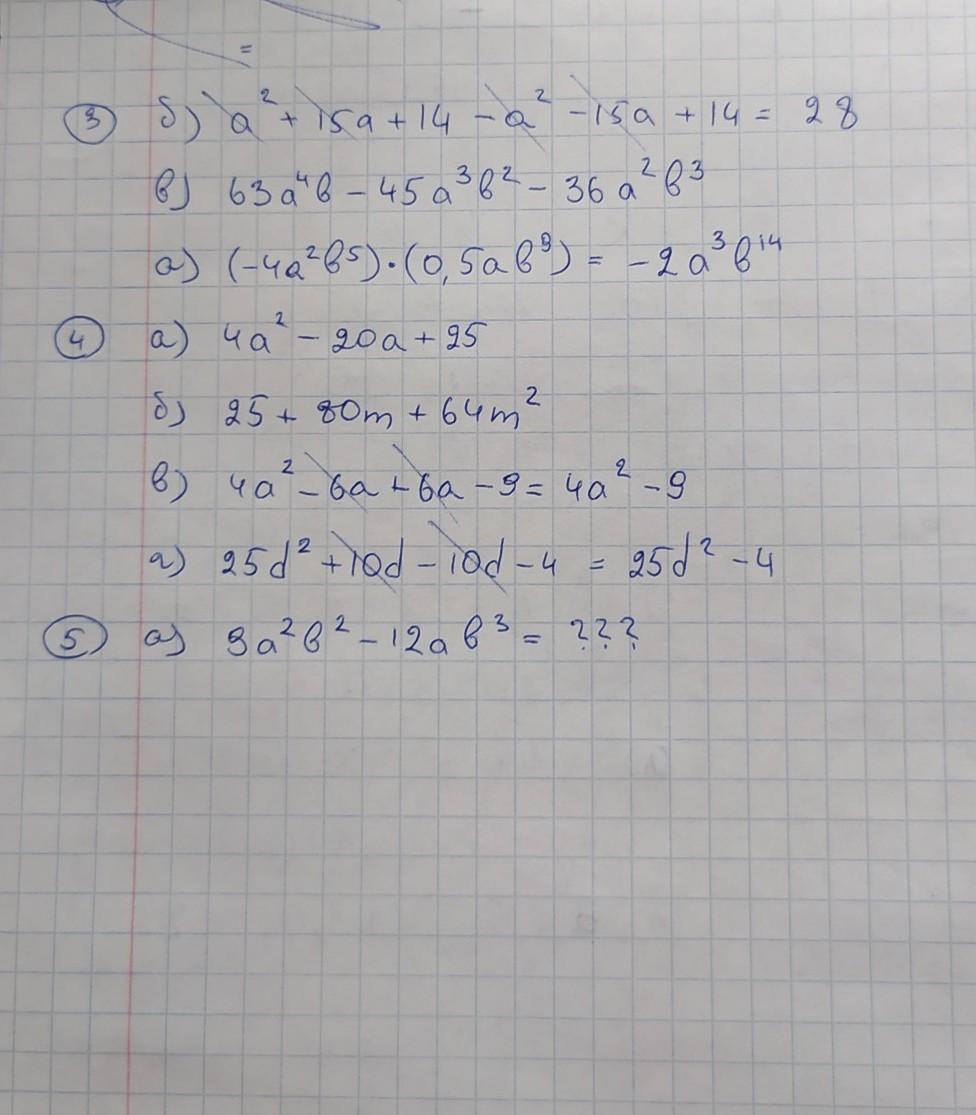 =
③ б) a² + 15a + 14 - a² - 15a + 14 = 28
в) 63a⁴b - 45a³b² - 36a²b³
а) (-4a²b⁵)·(0,5ab⁹) = -2a³b¹⁴
④ а) 4a² - 20a + 25
б) 25 + 80m + 64m²
в) 4a² - 6a + 6a - 9 = 4a² - 9
г) 25d² + 10d - 10d - 4 = 25d² - 4
⑤ а) 9a²b² - 12ab³ = ???